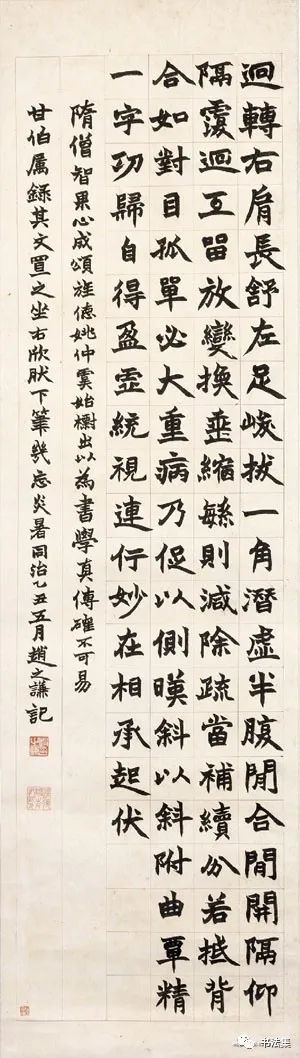 迴轉右肩長舒左足峻拔一角潛虛半腹閒合閒開隔仰
隔覆迴互畱放變換垂縮緐則減除疏當補續分若抵背
合如對目孤單必大重病乃促以側暎斜以斜附曲覃精
一字功歸自得盈虛統視連行妙在相承起伏
隋僧智果心成頌旌德姚仲虞始出以為書學真傳確不可易
甘伯屬錄其文置之坐右欣肰下筆幾忘炎暑同治乙丑五月趙之謙記
书法集